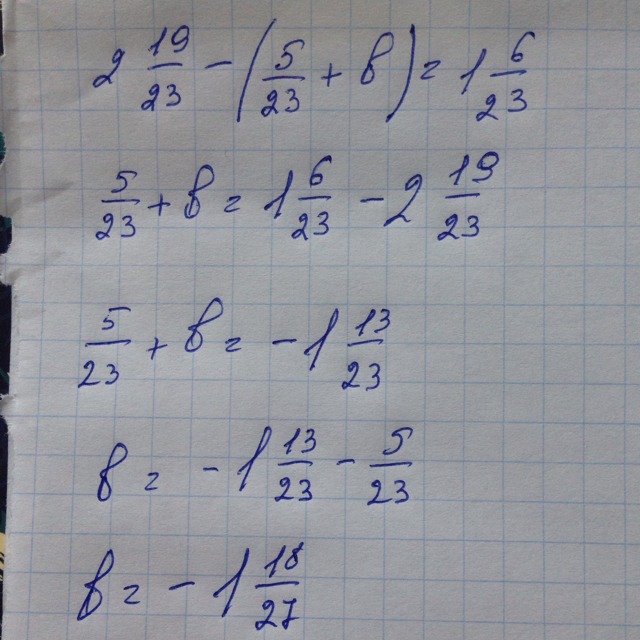 2 19/23 - (5/23 + b) = 1 6/23
5/23 + b = 1 6/23 - 2 19/23
5/23 + b = - 1 13/23
b = - 1 13/23 - 5/23
b = - 1 18/27